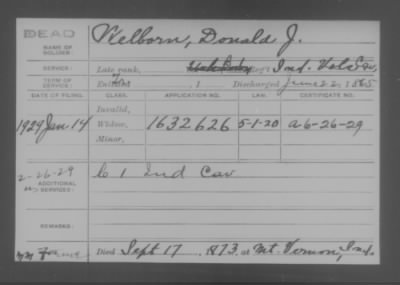 DEAD
Welborn, Donald J.
NAME OF SOLDIER:
SERVICE: Late rank, Reg't Ind. Vol Cav,
TERM OF SERVICE: Enlisted , 1 Discharged June 22, 1865
DATE OF FILING. CLASS. APPLICATION NO. LAW. CERTIFICATE NO.
Invalid,
1929 Jan 14 Widow, 1632626 5-1-20 a-6-26-29
Minor,
2-26-29 C 1 Ind Cav
ADDITIONAL SERVICES:
REMARKS:
Died Sept 17, 1873, at Mt. Vernon, Ind.